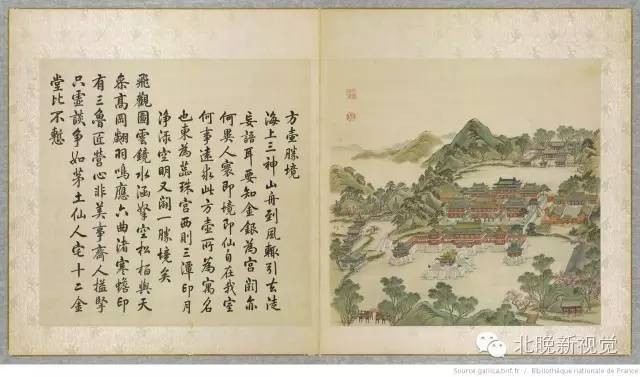 方壺勝境
海上三神山舟到風輒引去徒
妄語耳要知金銀為宮闕亦
何異人寰即境即仙自在我室
何事遠求此方壺所為寓名
也東為蕊珠宮西則三潭印月
淨淥空明又闢一勝境矣
飛觀圖雲鏡水涵拏空松柏與天
叅高岡翽羽鳴應六曲渚寒蟾印
有三魯匠營心非美事齊人搤掔
只虛談爭如茅土仙人宅十二金
堂比不慙
北晚新视觉
Source gallica.bnf.fr / Bibliothèque nationale de France